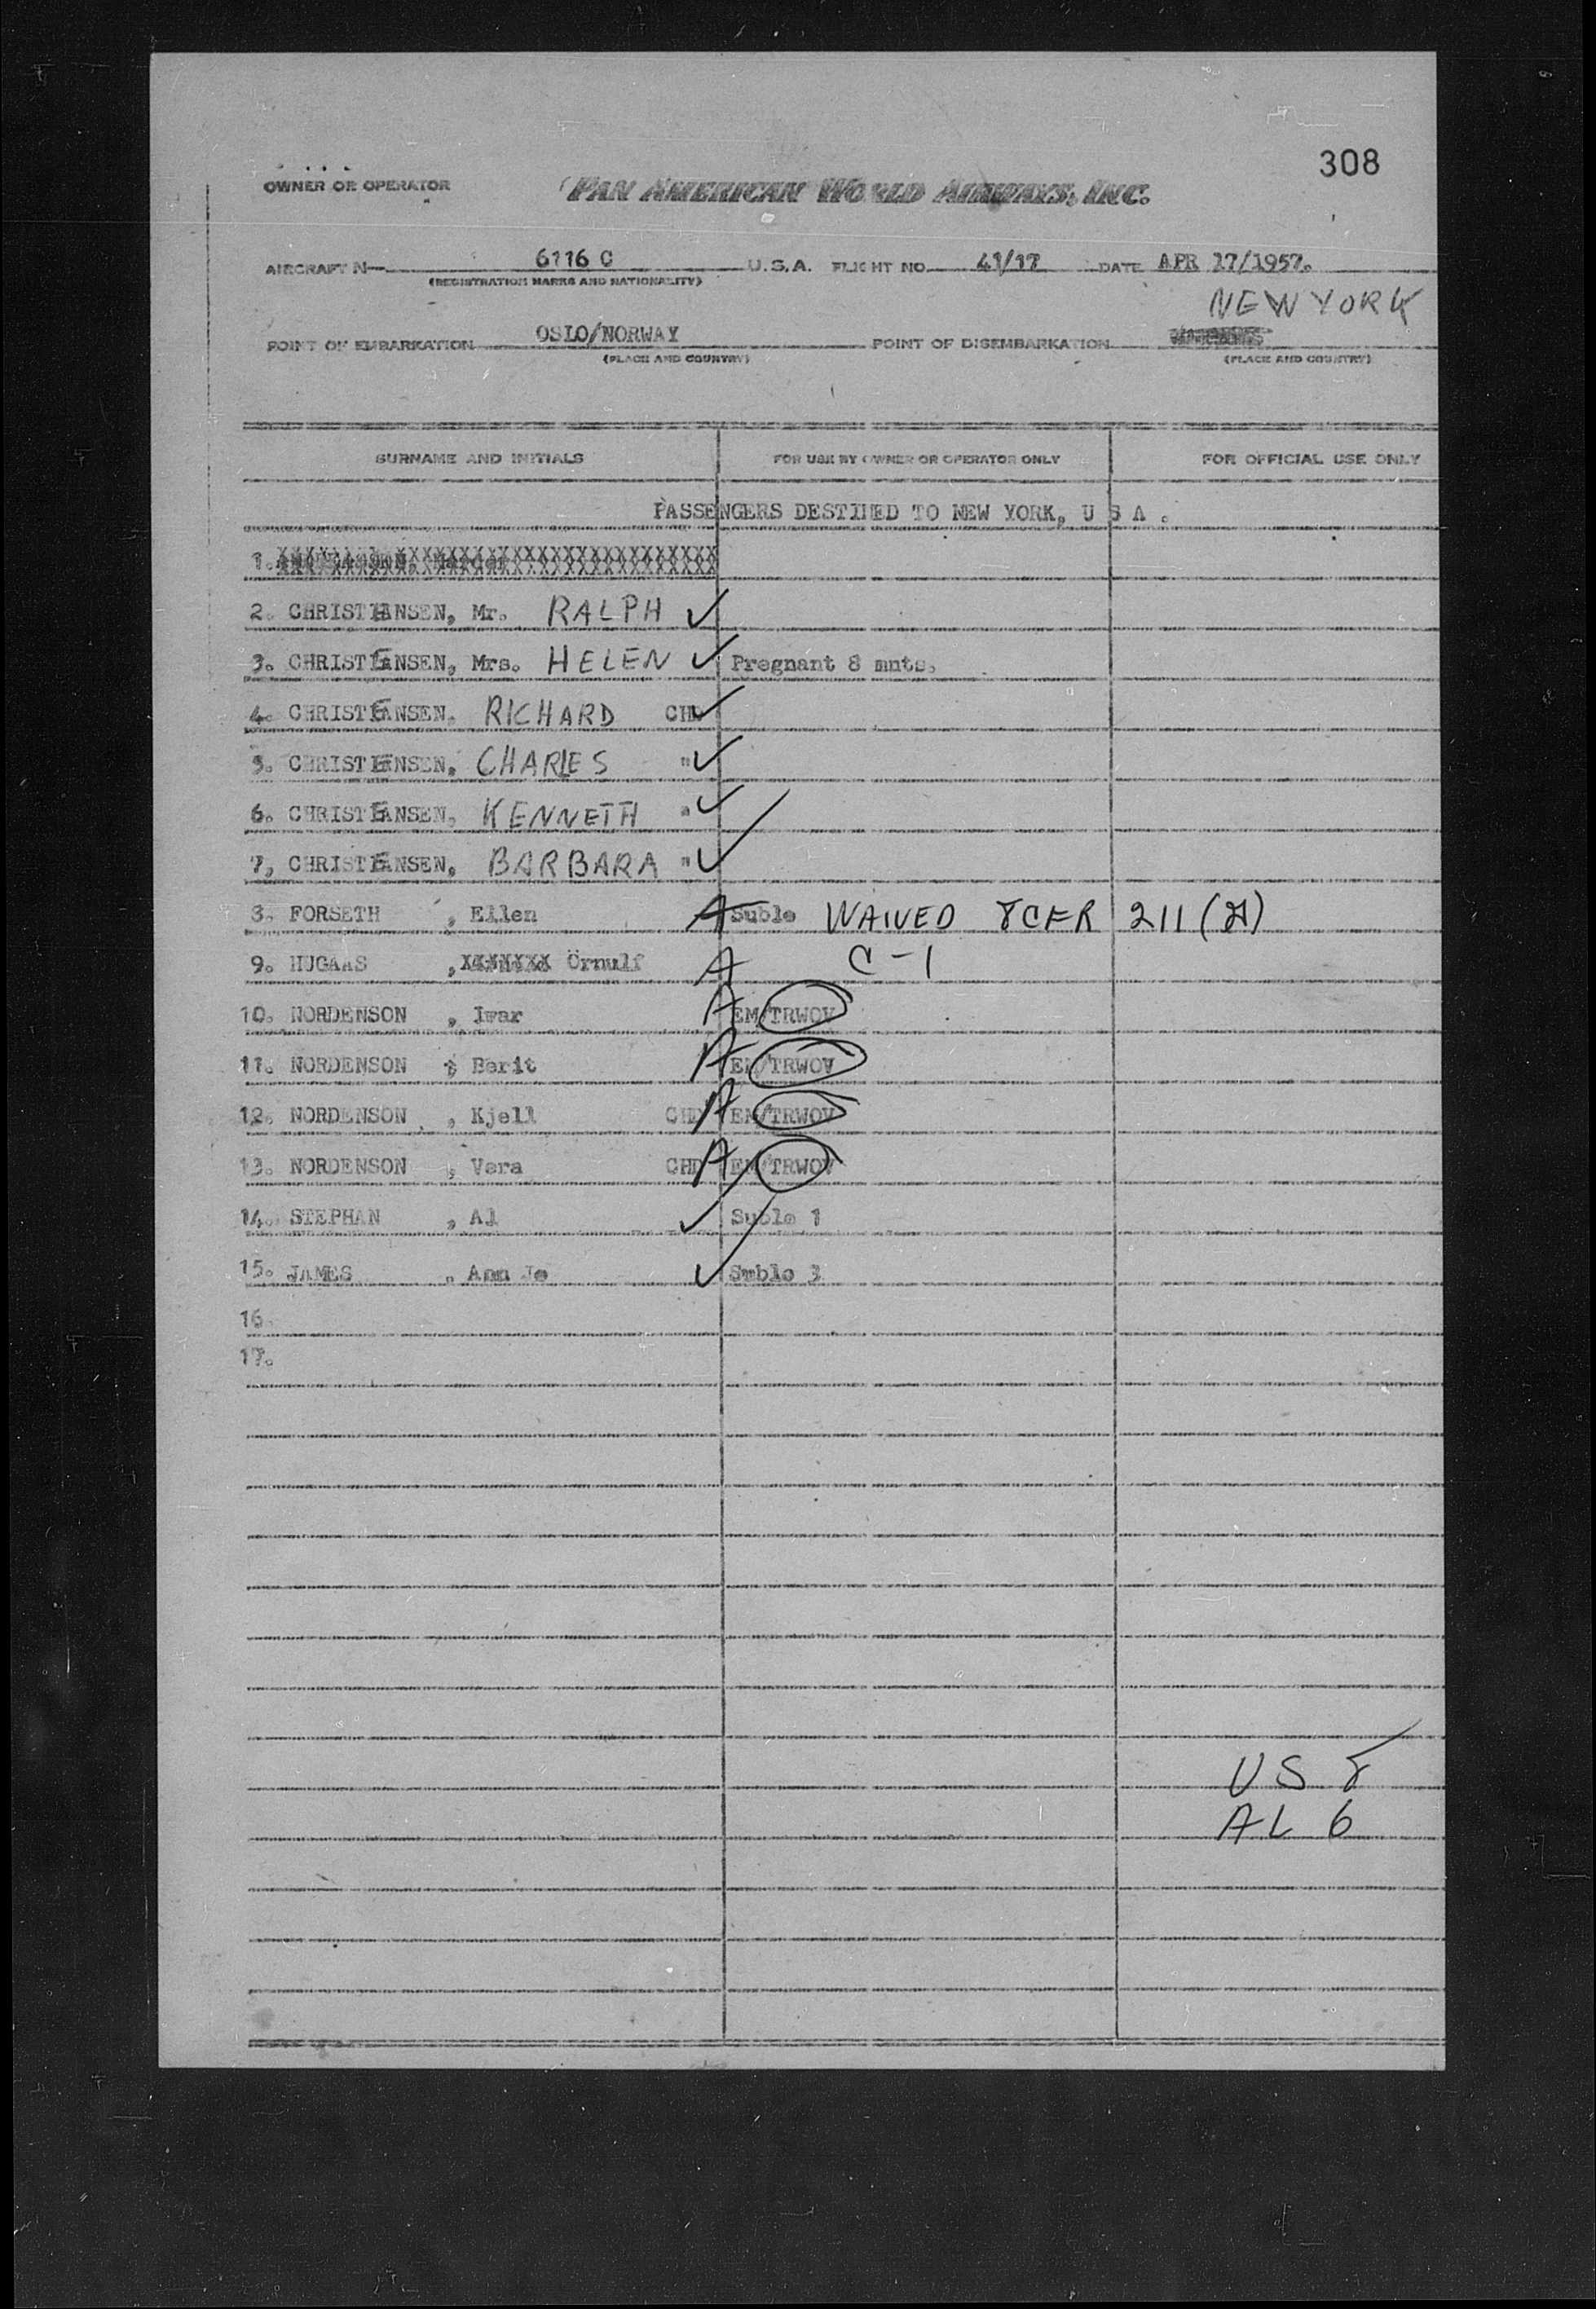 308
OWNER OR OPERATOR PAN AMERICAN WORLD AIRWAYS, INC.
AIRCRAFT N— 6116 C U.S.A. FLIGHT NO. 41/17 DATE APR 17/1957.
(REGISTRATION MARKS AND NATIONALITY)
NEW YORK
POINT OF EMBARKATION OSLO/NORWAY POINT OF DISEMBARKATION
(PLACE AND COUNTRY) (PLACE AND COUNTRY)
SURNAME AND INITIALS FOR USE BY OWNER OR OPERATOR ONLY FOR OFFICIAL USE ONLY
PASSENGERS DESTINED TO NEW YORK, U S A .
1.
2. CHRISTENSEN, Mr. RALPH ✓
3. CHRISTENSEN, Mrs. HELEN ✓ Pregnant 8 mnts.
4. CHRISTENSEN, RICHARD CHD ✓
5. CHRISTENSEN, CHARLES " ✓
6. CHRISTENSEN, KENNETH " ✓
7, CHRISTENSEN, BARBARA " ✓
8. FORSETH , Ellen A Suble WAIVED 8CFR 211 
9. HUGAAS , Örnulf A C-1
10. NORDENSON , Iwar A EM/TRWOV
11. NORDENSON , Berit A EM/TRWOV
12. NORDENSON , Kjell CHD A EM/TRWOV
13. NORDENSON , Vera CHD A EM/TRWOV
14. STEPHAN , Al ✓ Suble 1
15. JAMES , Ann Jo ✓ Suble 3
16.
17.
US 8
AL 6